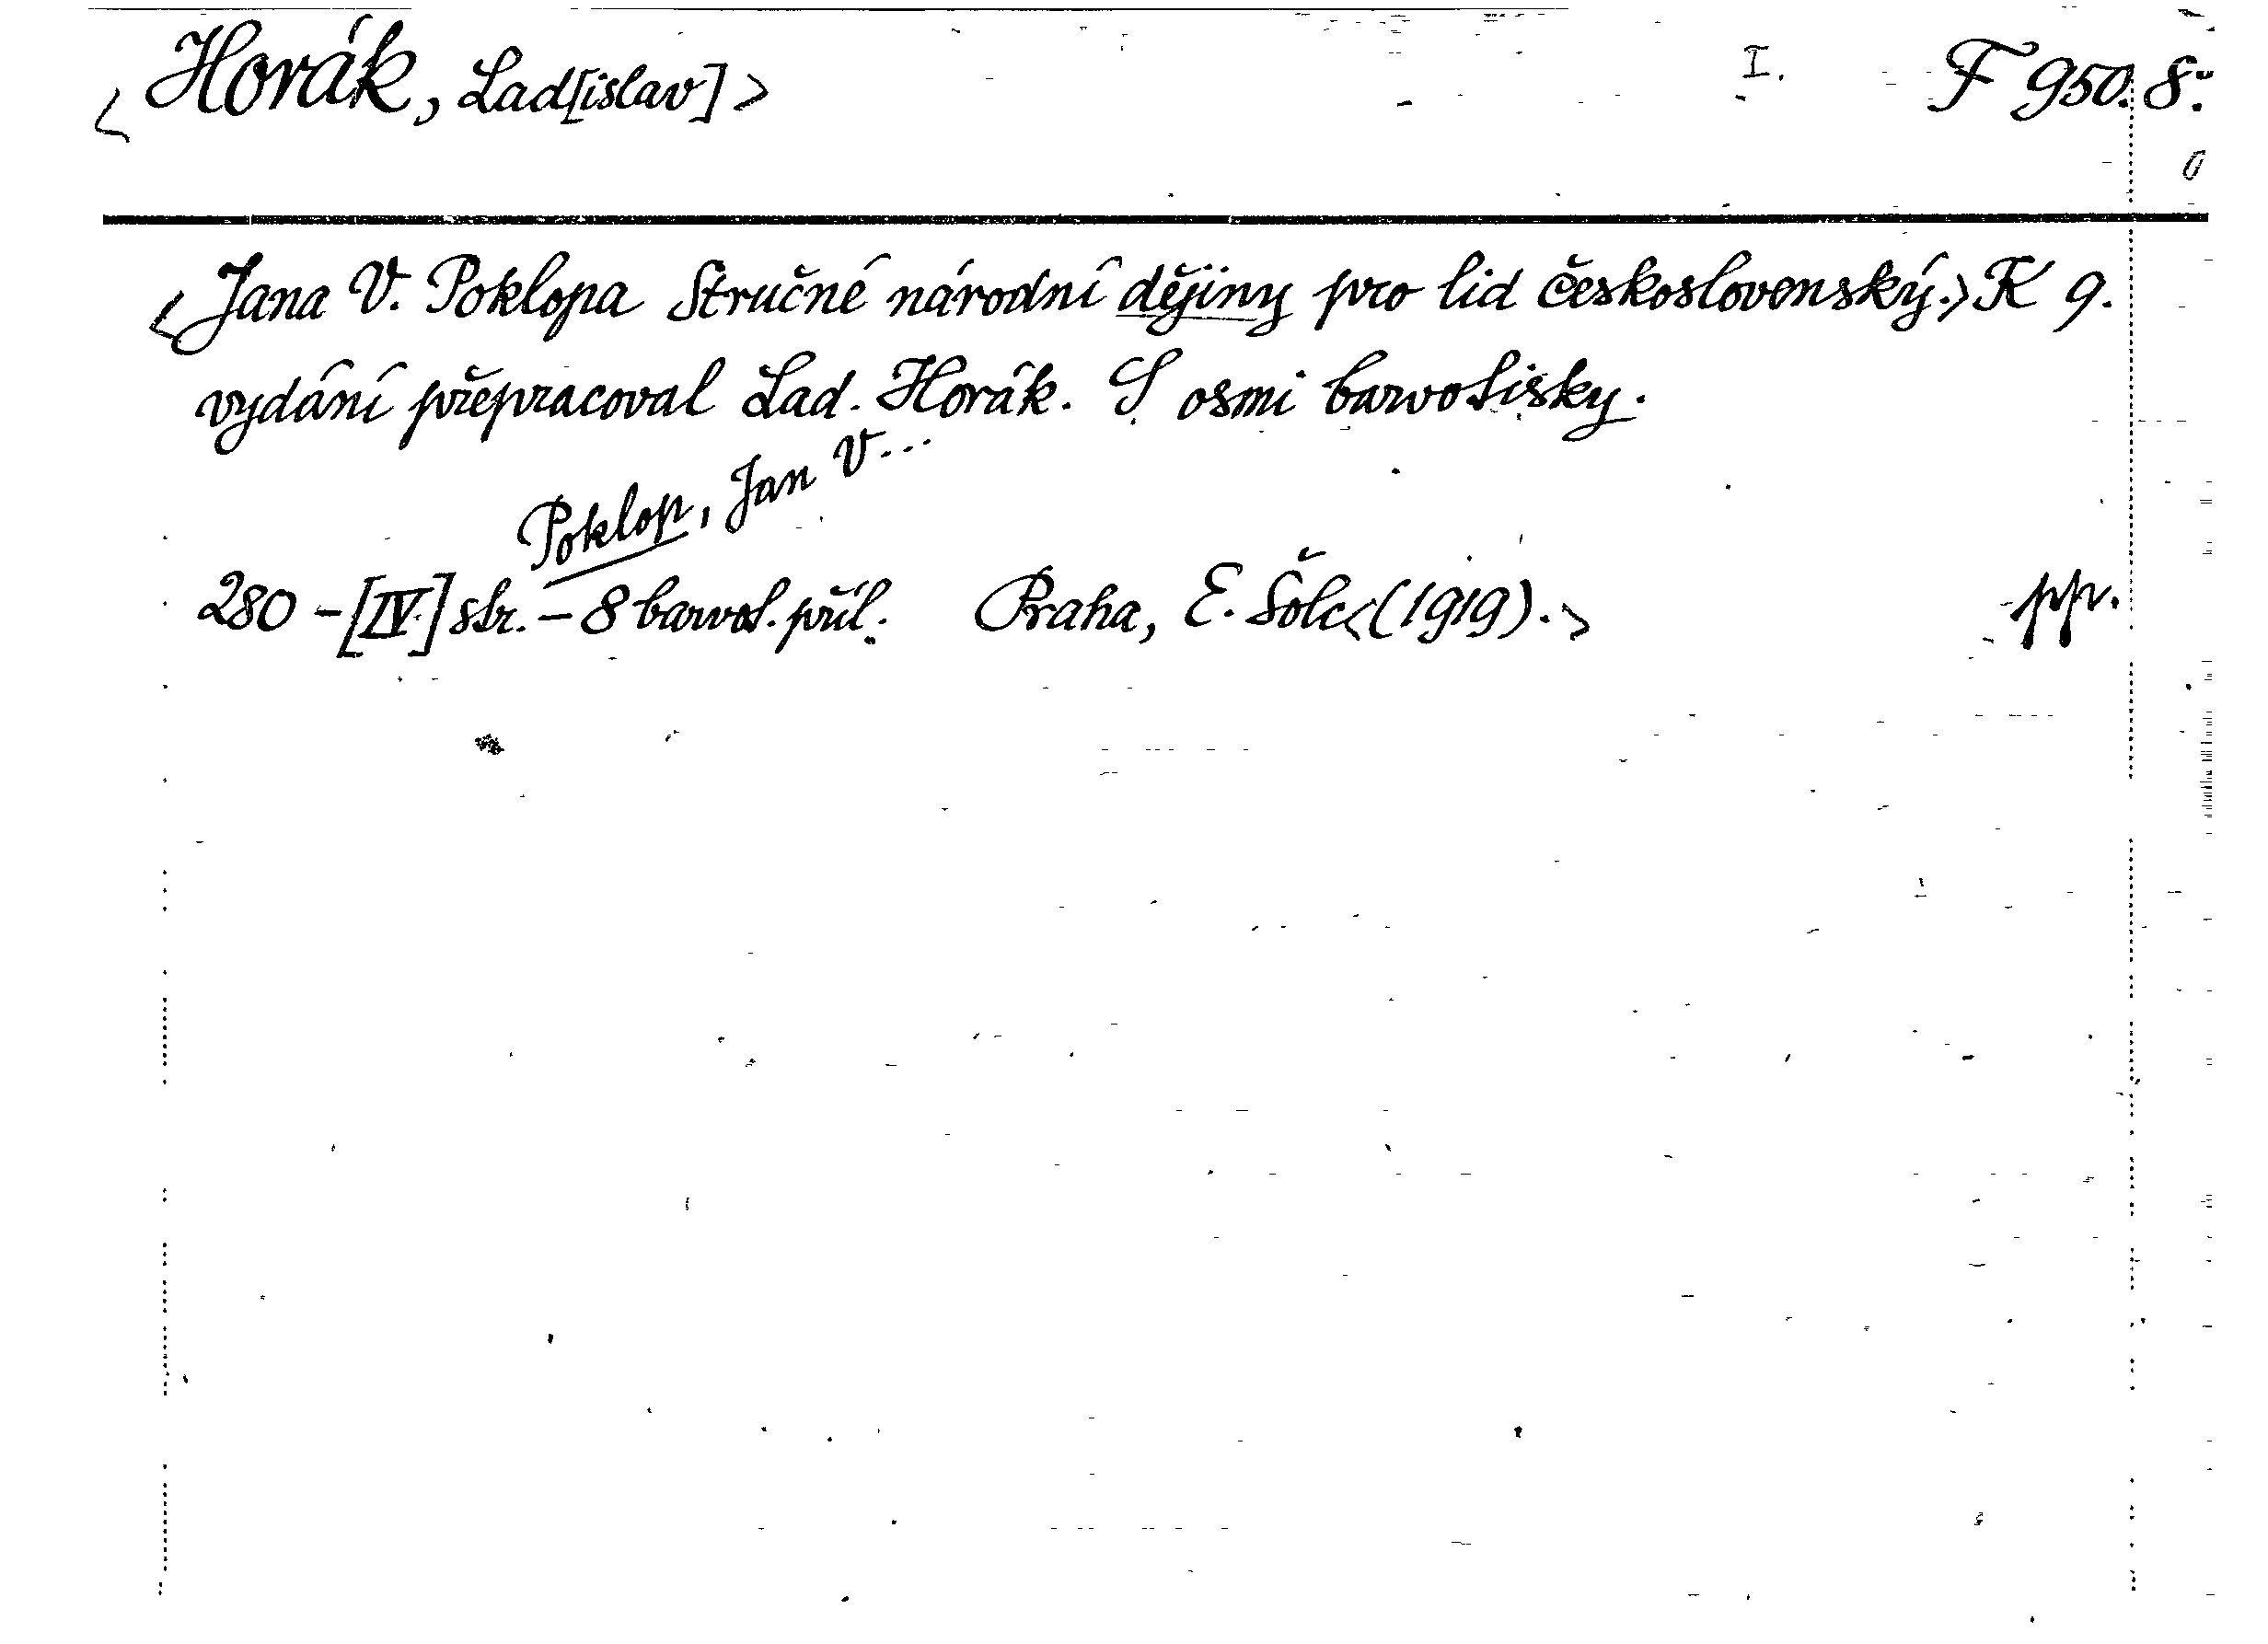 <Horák, Lad[islav]> I. F 950. 8.
<Jana V. Poklopa Stručné národní dějiny pro lid československý.> K 9.
vydání přepracoval Lad. Horák. S osmi barvotisky.
Poklop, Jan V...
280 - [IV.] str. - 8 barvot. příl. Praha, E. Šolc <(1919).> pp.